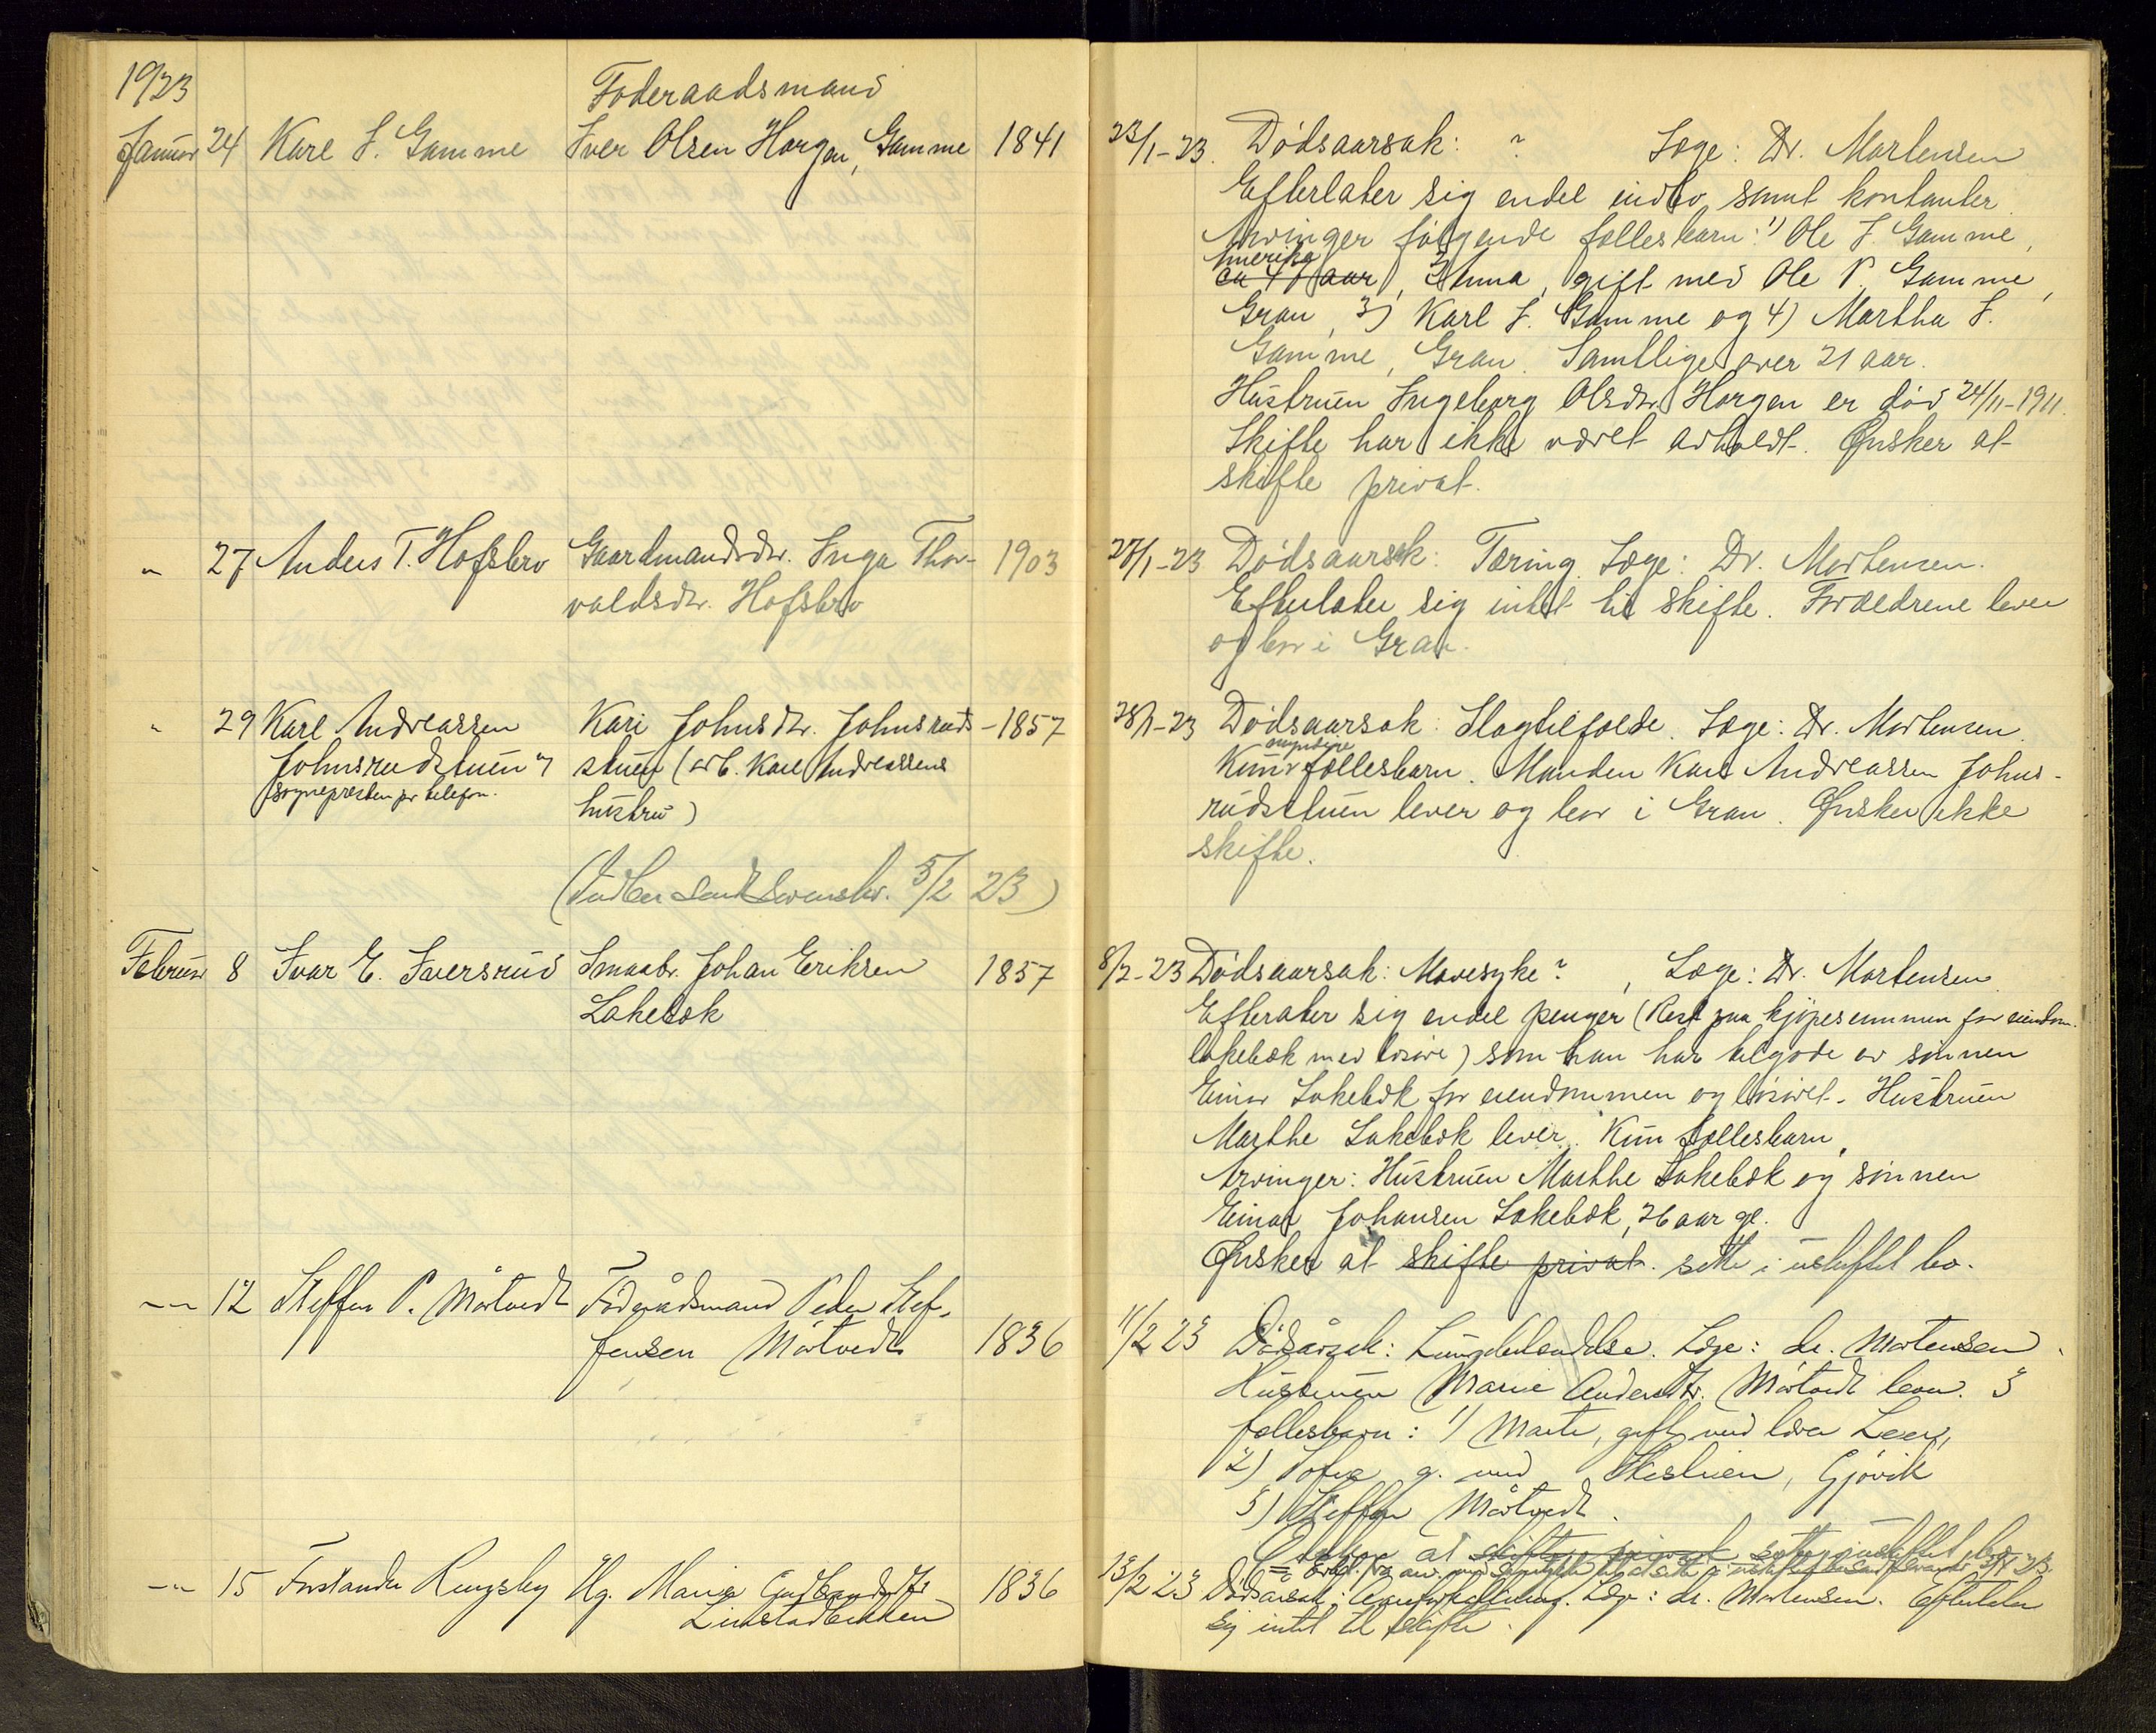 1923
Foderaadsmand
Januar 24 Karl I. Gamme Iver Olsen Horgen, Gamme 1841
23/1-23. Dødsaarsak: ? Læge: Dr. Mortensen
Efterlater sig endel indbo samt kontanter.
Arvinger følgende fællesbarn: 1) Ole I. Gamme,
Amerika
ca 47 aar, 2) Anna, gift med Ole P. Gamme,
Gran, 3) Karl I. Gamme og 4) Martha I.
Gamme, Gran. Samtlige over 21 aar.
Hustruen Ingeborg Olsdtr. Horgen er død 24/11-1911.
Skifte har ikke været avholdt. Ønsker at
skifte privat.
" 27 Anders T. Hofsbro Gaardmandsdtr. Inga Thor- 1903
valdsdtr. Hofsbro
27/1-23 Dødsaarsak: Tæring. Læge: Dr. Mortensen.
Efterlater sig intet til skifte. Forældrene lever
og bor i Gran.
" 29 Karl Andreassen Kari Johnsdtr. Johnsruds- 1857
Johnsrudstuen v/ stuen (arb. Karl Andreassens
sognepresten pr telefon. hustru)
28/1-23 Dødsaarsak: Slagtilfælde. Læge: Dr. Mortensen.
myndige
Kun fællesbarn. Manden Karl Andreassen Johns-
rudstuen lever og bor i Gran. Ønsker ikke
skifte.
(Indber. sendt 5/2 23)
Februar 8 Ivar E. Iversrud Smaabr. Johan Eriksen 1857
Lakebæk
8/2-23 Dødsaarsak: Mavesyke?, Læge: Dr. Mortensen.
Efterater sig endel penger (Rest paa kjøpesummen for eiendom.
lakebæk med løsøre) som han har tilgode av sønnen
Einar Lakebæk for eiendommen og løsøret. Hustruen
Marthe Lakebæk lever. Kun fællesbarn.
Arvinger: Hustruen Marthe Lakebæk og sønnen
Einar Johansen Lakebæk, 26 aar gl.
Ønsker at skifte privat. sitte i uskiftet bo.
-"- 12 Steffen P. Måtvedt Föderådsmand Peder Stef-
fensen Måtvedt 1836
11/2 23 Dödsårsak: Lungebetændelse. Læge: dr. Mortensen.
Hustruen Marie Andersdtr. Måtvedt lever. 3
fællesbarn: 1) Marte, gift med Iver Leen,
2) Sofie g. med Skistuen, Gjövik
3) Steffen Måtvedt.
Ønsker at skifte privat sitte i uskiftet bo
-"- 15 Forstander Ringsby Ug. Marie Gudbrandsdtr. 1836
Linstadbakken
13/2 23 Dödsårsak: Åreforkalkning. Læge: dr. Mortensen. Efterlater
sig intet til skifte.